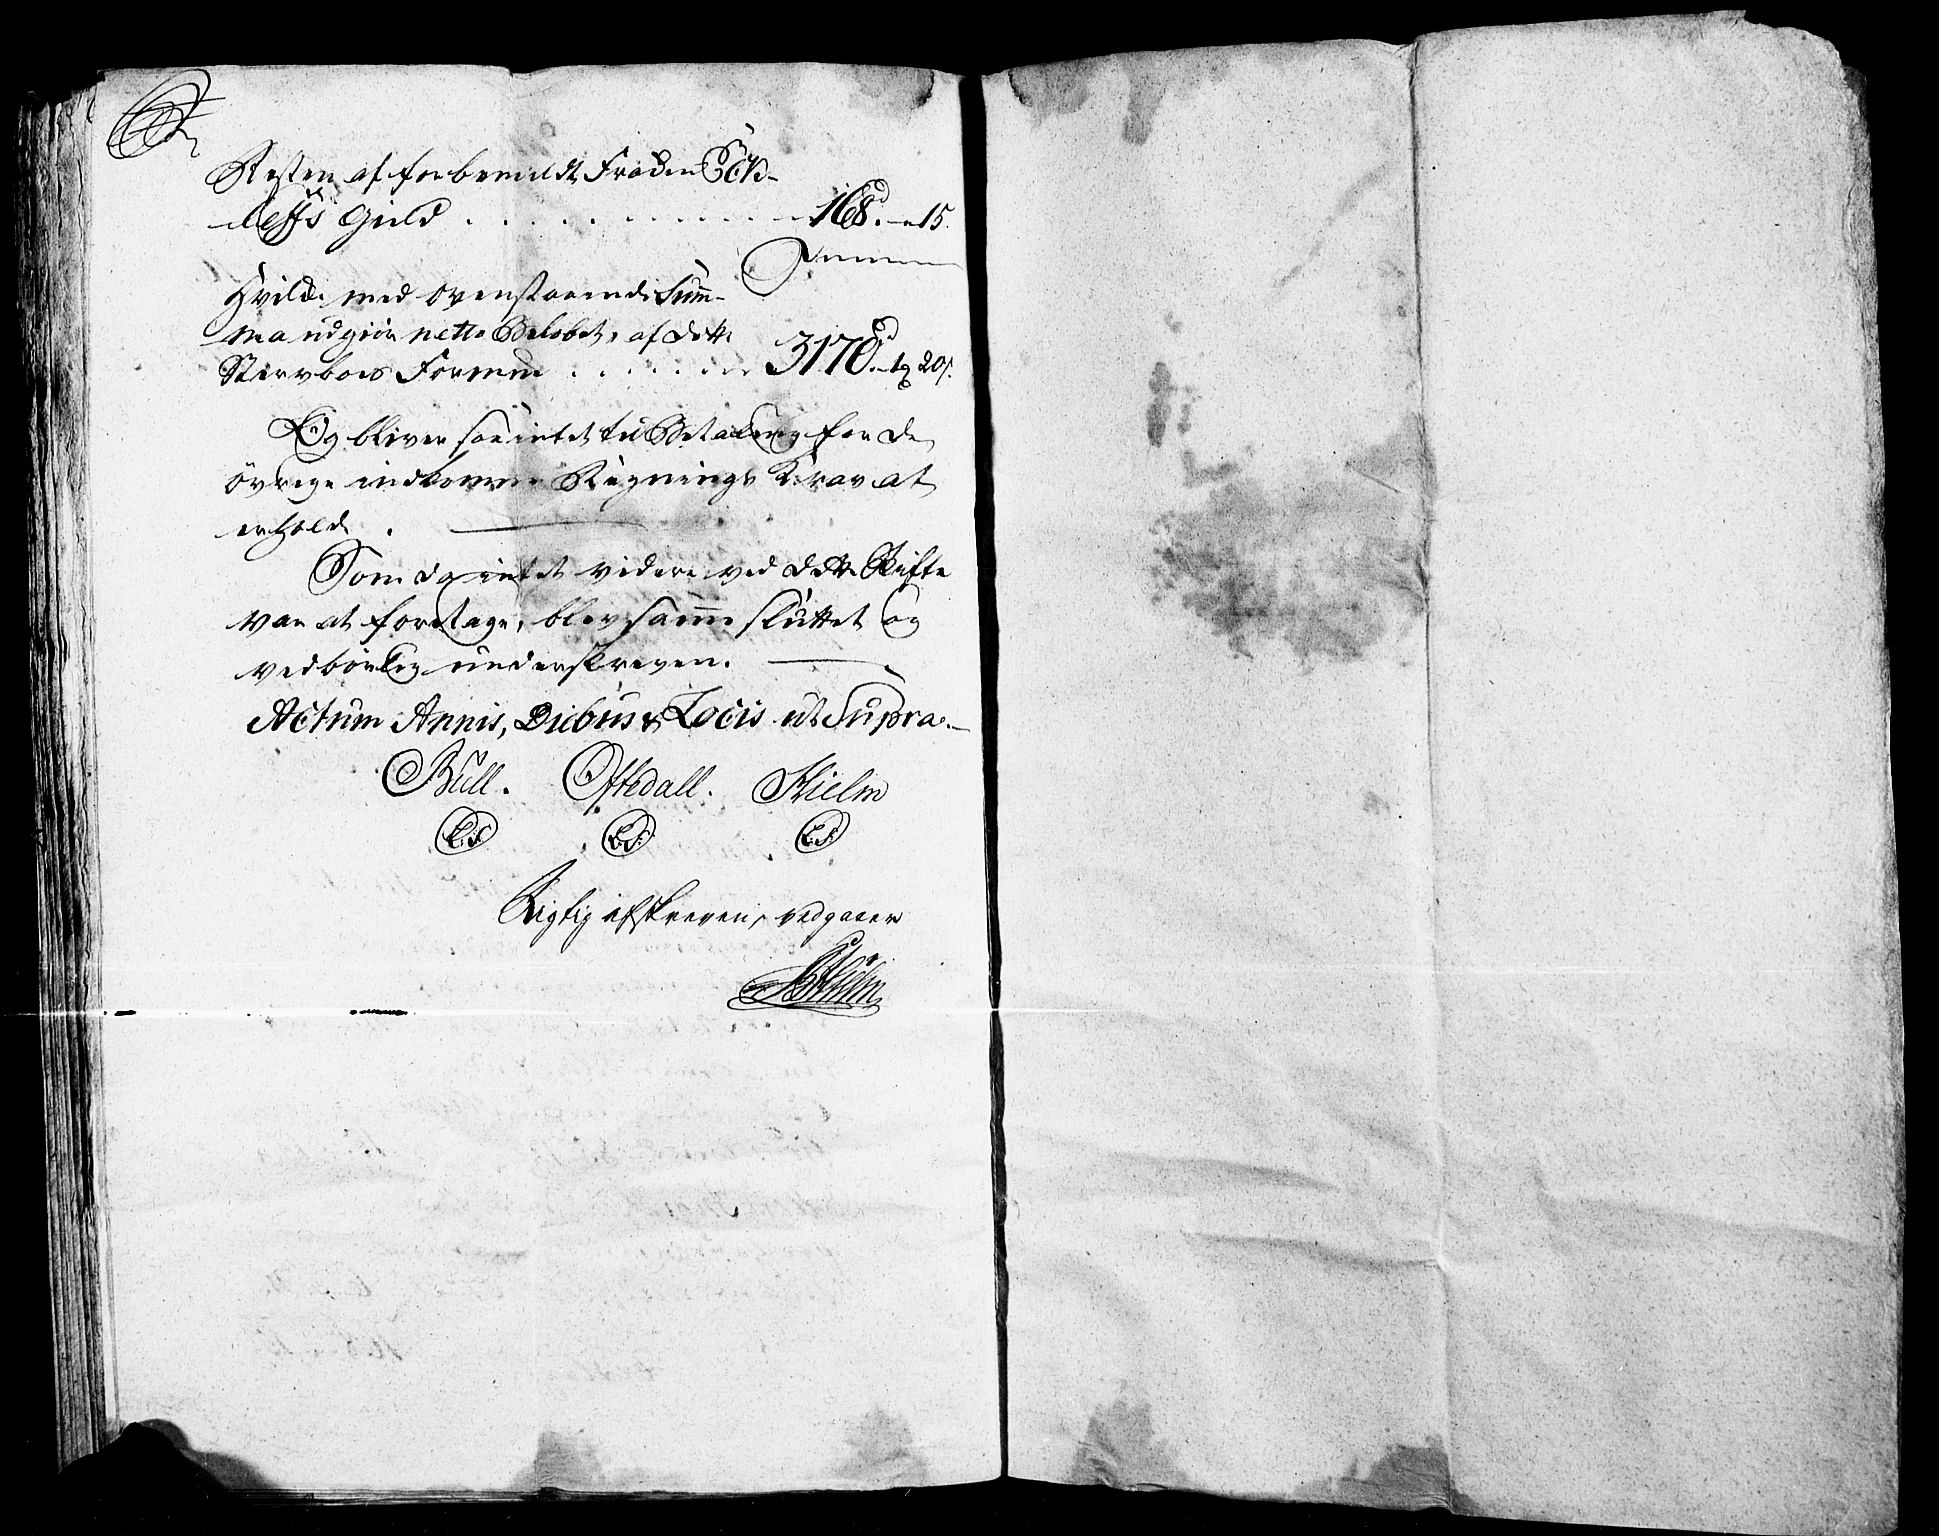 Resten af forbemeldte Frøden
leffs Gield . . . . . . . . . . 168. - 15.
Hvilke med ovenstaaende Sum-
ma udgiør netto Beløbet, af dette
Sterfboes Formue . . . . . . 3170. - 1 20
Og bliver saa intet til Betaling for de
øvrige indkomne Regnings Krav at
erholde.
Som da intet videre ved dette Skifte
var at foretage, blev samme sluttet og
vedbørlig underskreven.
Actum Annis, Diebus & Locis ut Supra.
Bull. Oftedall. Hielm
L.S. L.S. L.S.
Rigtig afskreven, vedgaaer
Hielm